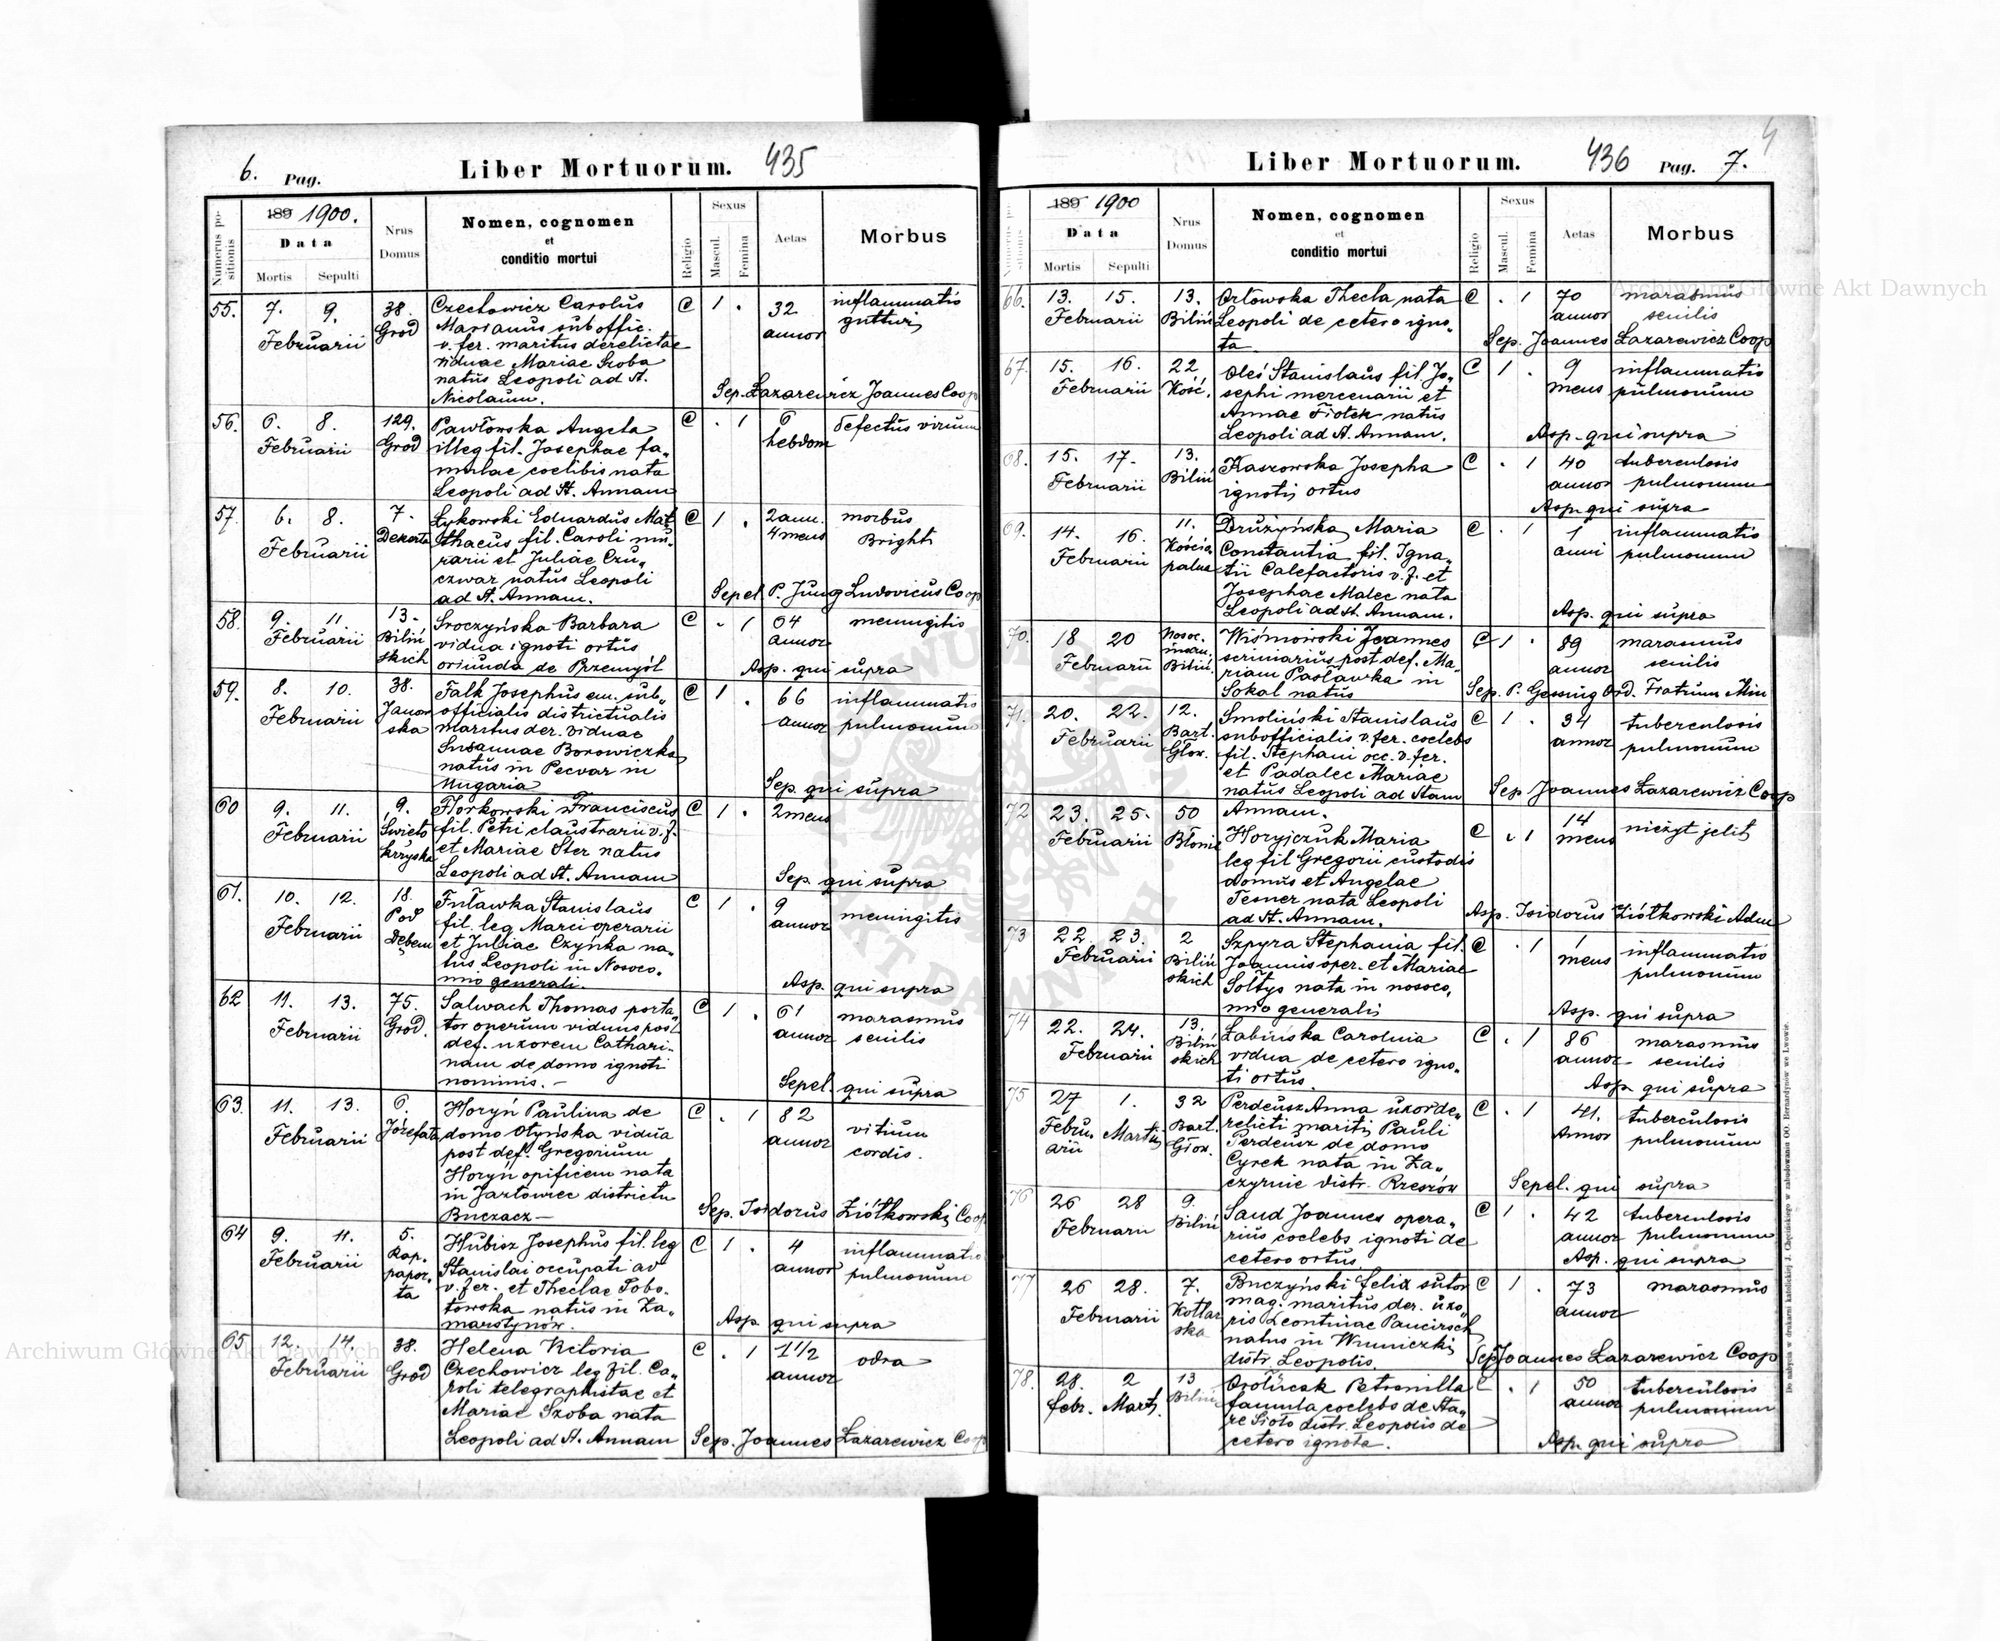 6. Pag. Liber Mortuorum. 435
Numerus positionis
189 1900.
Data
Mortis Sepulti
Nrus Domus
Nomen, cognomen
et
conditio mortui
Religio
Sexus
Mascul. Femina
Aetas
Morbus
55. 7. 9. Februarii 38. Grod
Czechowicz Carolus
Marianus suboffic.
v. fer. maritus derelictae
viduae Mariae
natus Leopoli ad St.
Nicolaum.
C 1 . 32 annor inflammatio gutturis
Sep. Łazarewicz Joannes Coop
56. 6. 8. Februarii 129. Grod
Pawłowska Angela
illeg fil. Josephae fa„
mulae coelibis nata
Leopoli ad St. Annam
C . 1 6 hebdom defectus virium
57. 6. 8. Februarii 7.
Łykowski Eduardus Mat
thaeus fil. Caroli mu„
rarii et Juliae Czu„
czwar natus Leopoli
ad St. Annam.
C 1 . 2 ann. 4 mens morbus Brighti
Sepel. P. Jung Ludovicus Coop
58. 9. 11. Februarii 13. Biliń skich
Sroczyńska Barbara
vidua ignoti ortus
oriunda de Przemyśl
C . 1 64 annor meningitis
Asp. qui supra
59. 8. 10. Februarii 38. Janow ska
Falk Josephus em. sub„
officialis districtualis
maritus der. viduae
Susannae Borowiczka
natus in Pecvar in
Hugaria
C 1 . 66 annor inflammatio pulmonum
Sep. qui supra
60 9. 11. Februarii 9. Święto krzyska
Florkowski Franciscus
fil. Petri claustrarii v. f.
et Mariae Ster natus
Leopoli ad St. Annam
C 1 . 2 mens
Sep. qui supra
61. 10. 12. Februarii 18. Pod Dębem
Fuławka Stanislaus
fil. leg Marci operarii
et Juliae Czyńka na„
tus Leopoli in Nosoco„
mio generali.
C 1 . 9 annor meningitis
Asp. qui supra
62 11. 13. Februarii 75. Grod.
Salwach Thomas porta„
tor onerum viduus post
def. uxorem Cathari„
nam de domo ignoti
nominis. –
C 1 . 61 annor marasmus senilis
Sepel. qui supra
63. 11. 13. Februarii 6. Józefata
Horyń Paulina de
domo Otyńska vidua
post def. Gregorium
Horyń opificem nata
in Jazłowiec districtu
Buczacz –
C . 1 82 annor vitium cordis.
Sep. Isidorus Ziółkowski Coop
64 9. 11. Februarii 5. Rap. papor„ ta
Hubisz Josephus fil. leg
Stanislai occupati ad
v. fer. et Theclae Sobo„
towska natus in Za„
marstynów.
C 1 . 4 annor inflammatio pulmonum
Asp. qui supra
65 12. 14. Februarii 38. Grod
Helena Victoria
Czechowicz leg fil. Ca„
roli telegraphistae et
Mariae Szoba nata
Leopoli ad St. Annam
C . 1 1 1/2 annor odra
Sep. Joannes Łazarewicz Coop
Liber Mortuorum. 436 Pag. 7. 4
189 1900
Data
Mortis Sepulti
Nrus Domus
Nomen, cognomen
et
conditio mortui
Religio
Sexus
Mascul. Femina
Aetas
Morbus
66. 13. 15. Februarii 13. Biliń
Orłowska Thecla nata
Leopoli de cetero igno„
ta
C . 1 70 annor marasmus senilis
Sep. Joannes Łazarewicz Coop
67. 15. 16. Februarii 22 Kość.
Oleś Stanislaus fil. Jo„
sephi mercenarii et
Annae Fiołek natus
Leopoli ad St. Annam.
C 1 . 9 mens inflammatio pulmonum
Asp. qui supra
68. 15. 17. Februarii 13. Biliń
Kaszowska Josepha
ignoti ortus
C . 1 40 annor tuberculosis pulmonum
Asp. qui supra
69. 14. 16. Februarii 11.
Drużyńska Maria
Constantia fil. Igna„
tii Calefactoris v. f. et
Josephae Malec nata
Leopoli ad St. Annam.
C . 1 1 anni inflammatio pulmonum
Asp. qui supra
70. 18 20 Februarii Nosoc. Biliń.
Wiśniowski Joannes
scriniarius post def. Ma„
riam Pasławka in
Sokal natus
C 1 . 89 annor marasmus senilis
Sep. P. Gessing Ord. Fratrum Min
71. 20. 22. Februarii 12. Bart. Głow.
Smoliński Stanislaus
subofficialis v. fer. coelebs
fil. Stephani occ. v. fer.
et Padalec Mariae
natus Leopoli ad Stam
Annam.
C 1 . 34 annor tuberculosis pulmonum
Sep. Joannes Łazarewicz Coop
72 23. 25. Februarii 50 Błonie
Horyjczuk Maria
leg fil Gregorii custodis
domus et Angelae
Tesner nata Leopoli
ad St. Annam.
C . 1 14 mens nieżyt jelit
Asp. Isidorus Ziółkowski Adm
73 22. 23. Februarii 2 Biliń skich
Szpyra Stephania fil.
Joannis oper. et Mariae
Sołtys nata in nosoco„
mio generali
C . 1 1 mens inflammatio pulmonum
Asp. qui supra
74 22. 24. Februarii 13. Biliń skich
Łabińska Carolina
vidua de cetero igno„
ti ortus.
C . 1 86 annor marasmus senilis
Asp. qui supra
75 27 Febru„ arii 1. Martii 32 Bart. Głow.
Perdeusz Anna uxor de„
relicti mariti Pauli
Perdeusz de domo
Cyrek nata in Za„
czyrnie distr. Rzeszów
C . 1 41. Annor tuberculosis pulmonum
Sepel. qui supra
76 26 28 Februarii 9. Biliń
Saud Joannes opera„
rius coelebs ignoti de
cetero ortus.
C 1 . 42 annor tuberculosis pulmonum
Asp. qui supra
77 26 28. Februarii 7. Kotlar ska
Buczyński Felix sutor
mag. maritus der. uxo„
ris Leontinae
natus in
distr. Leopolis.
C 1 . 73 annor marasmus
Sep Joannes Łazarewicz Coop
78. 28. febr. 2 Marti. 13 Biliń
Petronilla
famula coelebs de Sta„
re Sioło distr. Leopolis de
cetero ignota.
C . 1 50 annor tuberculosis pulmonum
Asp. qui supra
Do nabycia w drukarni katolickiej J. Chęcińskiego w zabudowaniu OO. Bernardynów we Lwowie.
Archiwum Główne Akt Dawnych
Archiwum Główne Akt Dawnych